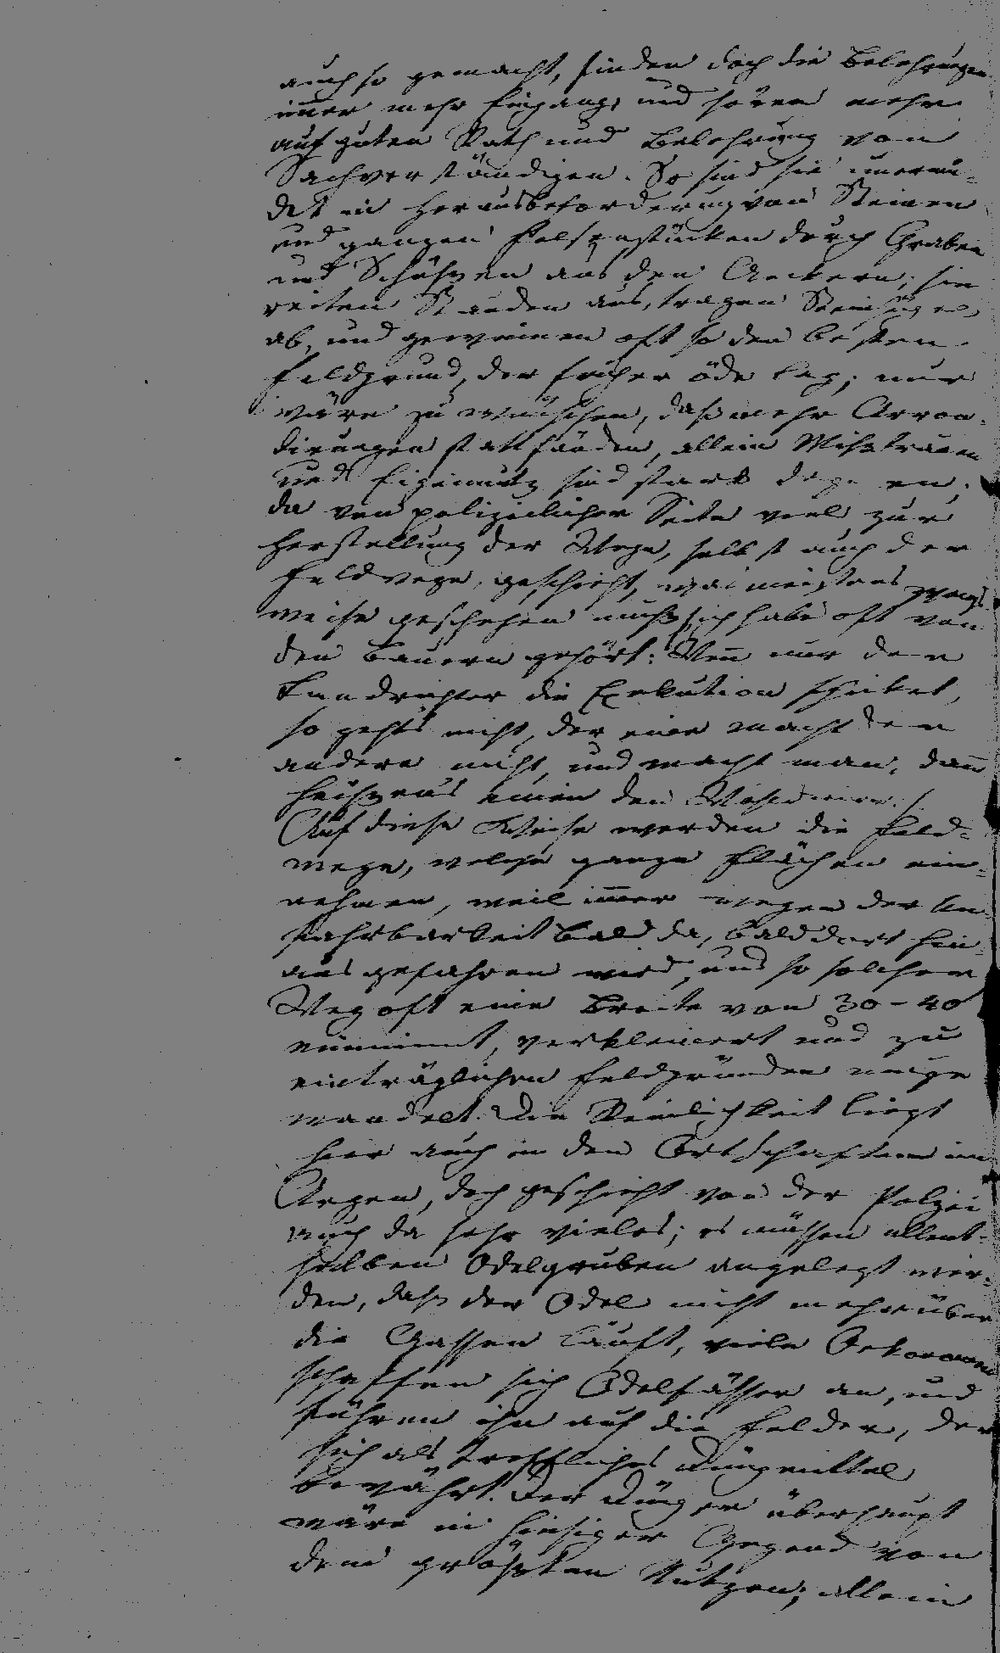 auch so gemacht, finden doch die Belehrungen
immer mehr Eingang, und hören mehr
auf guten Rath und Belehrung von
Sachverständigen. So sind sie unermü-
det in Herausbeförderung von Steinen
und ganzen Felsenstücken durch Graben
und Schießen aus den Aeckern, sie
reiten Stauden aus, tragen Steinhügel
ab, und gewinnen oft so den besten
Feldgrund, der früher öde lag; nur
wäre zu wünschen, daß mehr Arron-
dirungen statt fänden, allein Mißtrauen
und Eigennutz sind stark dagegen;
da von polizeilicher Seite viel zur
Herstellung der Wege, selbst auch der
Feldwege, geschieht, was meistens zwangs
weise geschehen muß, ich habe oft von
den Bauern gehört: Wenn nur der
Landrichter die Exekution schicket,
so gehts nicht, der eine macht der
andere nicht, und macht man, dann
heißens einen den
Auf diese Weise werden die Feld-
wege, welche ganze Flächen ein-
nehmen, weil immer wegen der Un-
fahrbarkeit bald da, bald dort hin-
aus gefahren wird, und so solcher
Weg oft eine Breite von 30 - 40'
einnimmt, verkleinert und zu
einträglichen Feldgründen umge
wandelt. Die Reinlichkeit liegt
hier auch in den Ortschaften im
Argen, doch geschieht von der Polizei
auch da sehr vieles; es müssen allent-
halben Odelgruben angelegt wer-
den, daß der Odel nicht mehr über
die Gassen läuft, viele Oekonomen
schaffen sich Odelfässer an, und
führen ihn auf die Felder, der
sich als treffliches Düngmittel
bewährt. Der Dünger überhaupt
wäre in hiesiger Gegend von
dem größten Nutzen; allein